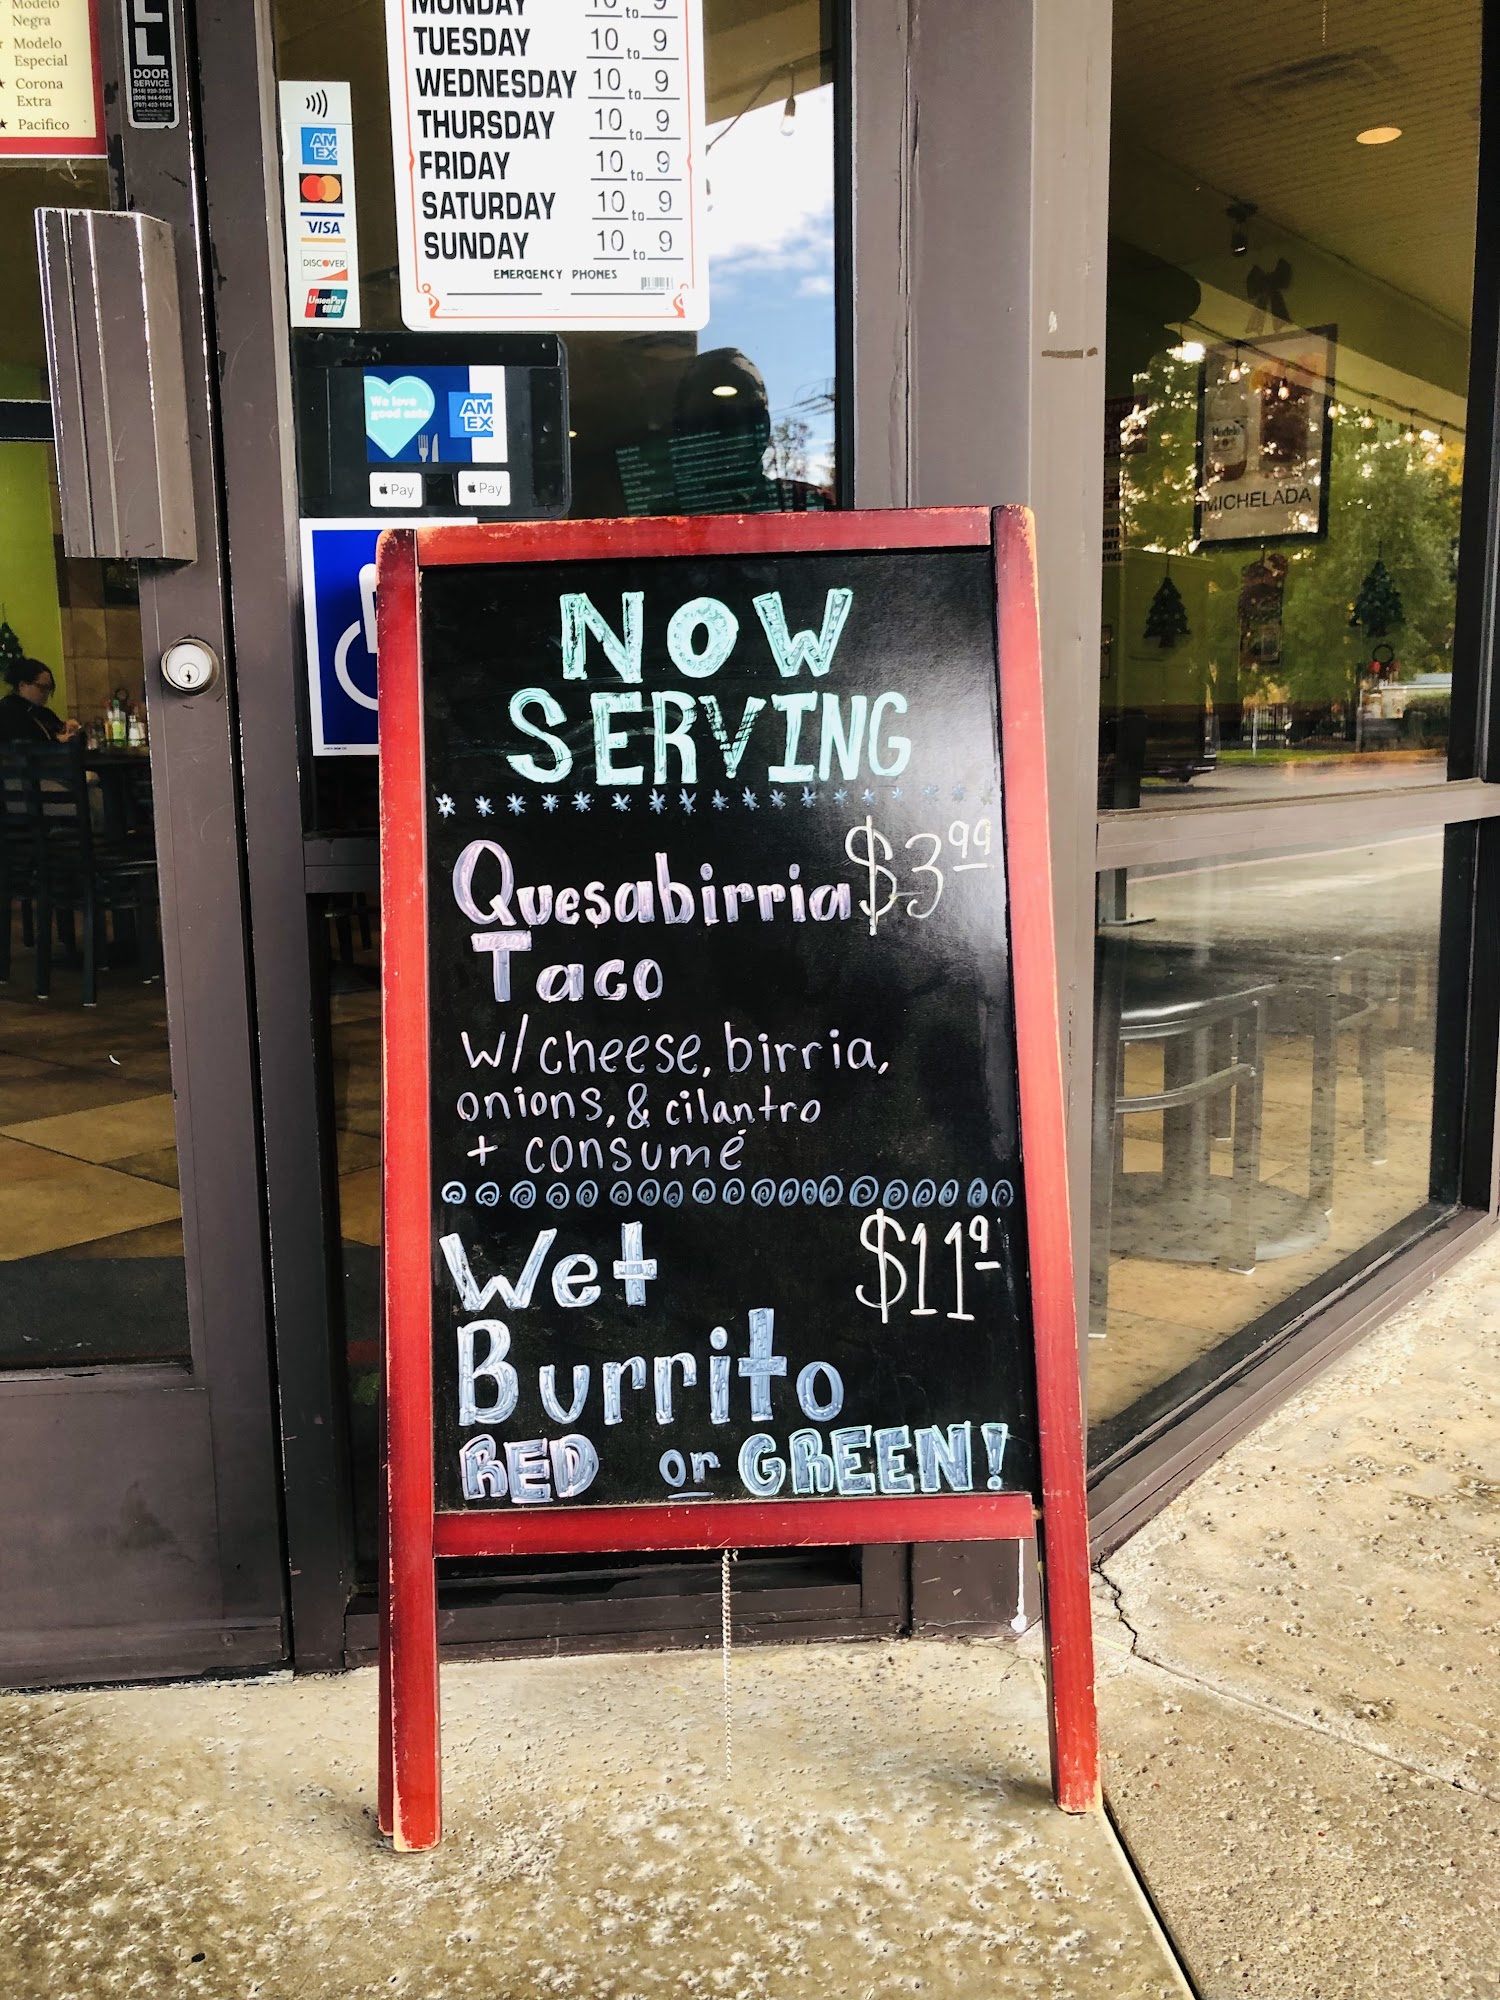 Modelo
Negra
Modelo
Especial
Corona
Extra
Pacifico
DOOR
SERVICE
MONDAY 10 to 9
TUESDAY 10 to 9
WEDNESDAY 10 to 9
THURSDAY 10 to 9
FRIDAY 10 to 9
SATURDAY 10 to 9
SUNDAY 10 to 9
EMERGENCY PHONES
AM
EX
VISA
DISCOVER
UnionPay
We love
good eats
AM
EX
Pay
Pay
Modelo
MICHELADA
NOW
SERVING
Quesabirria $3.99
Taco
w/cheese, birria,
onions, & cilantro
+ consumé
Wet $11.9
Burrito
RED or GREEN!